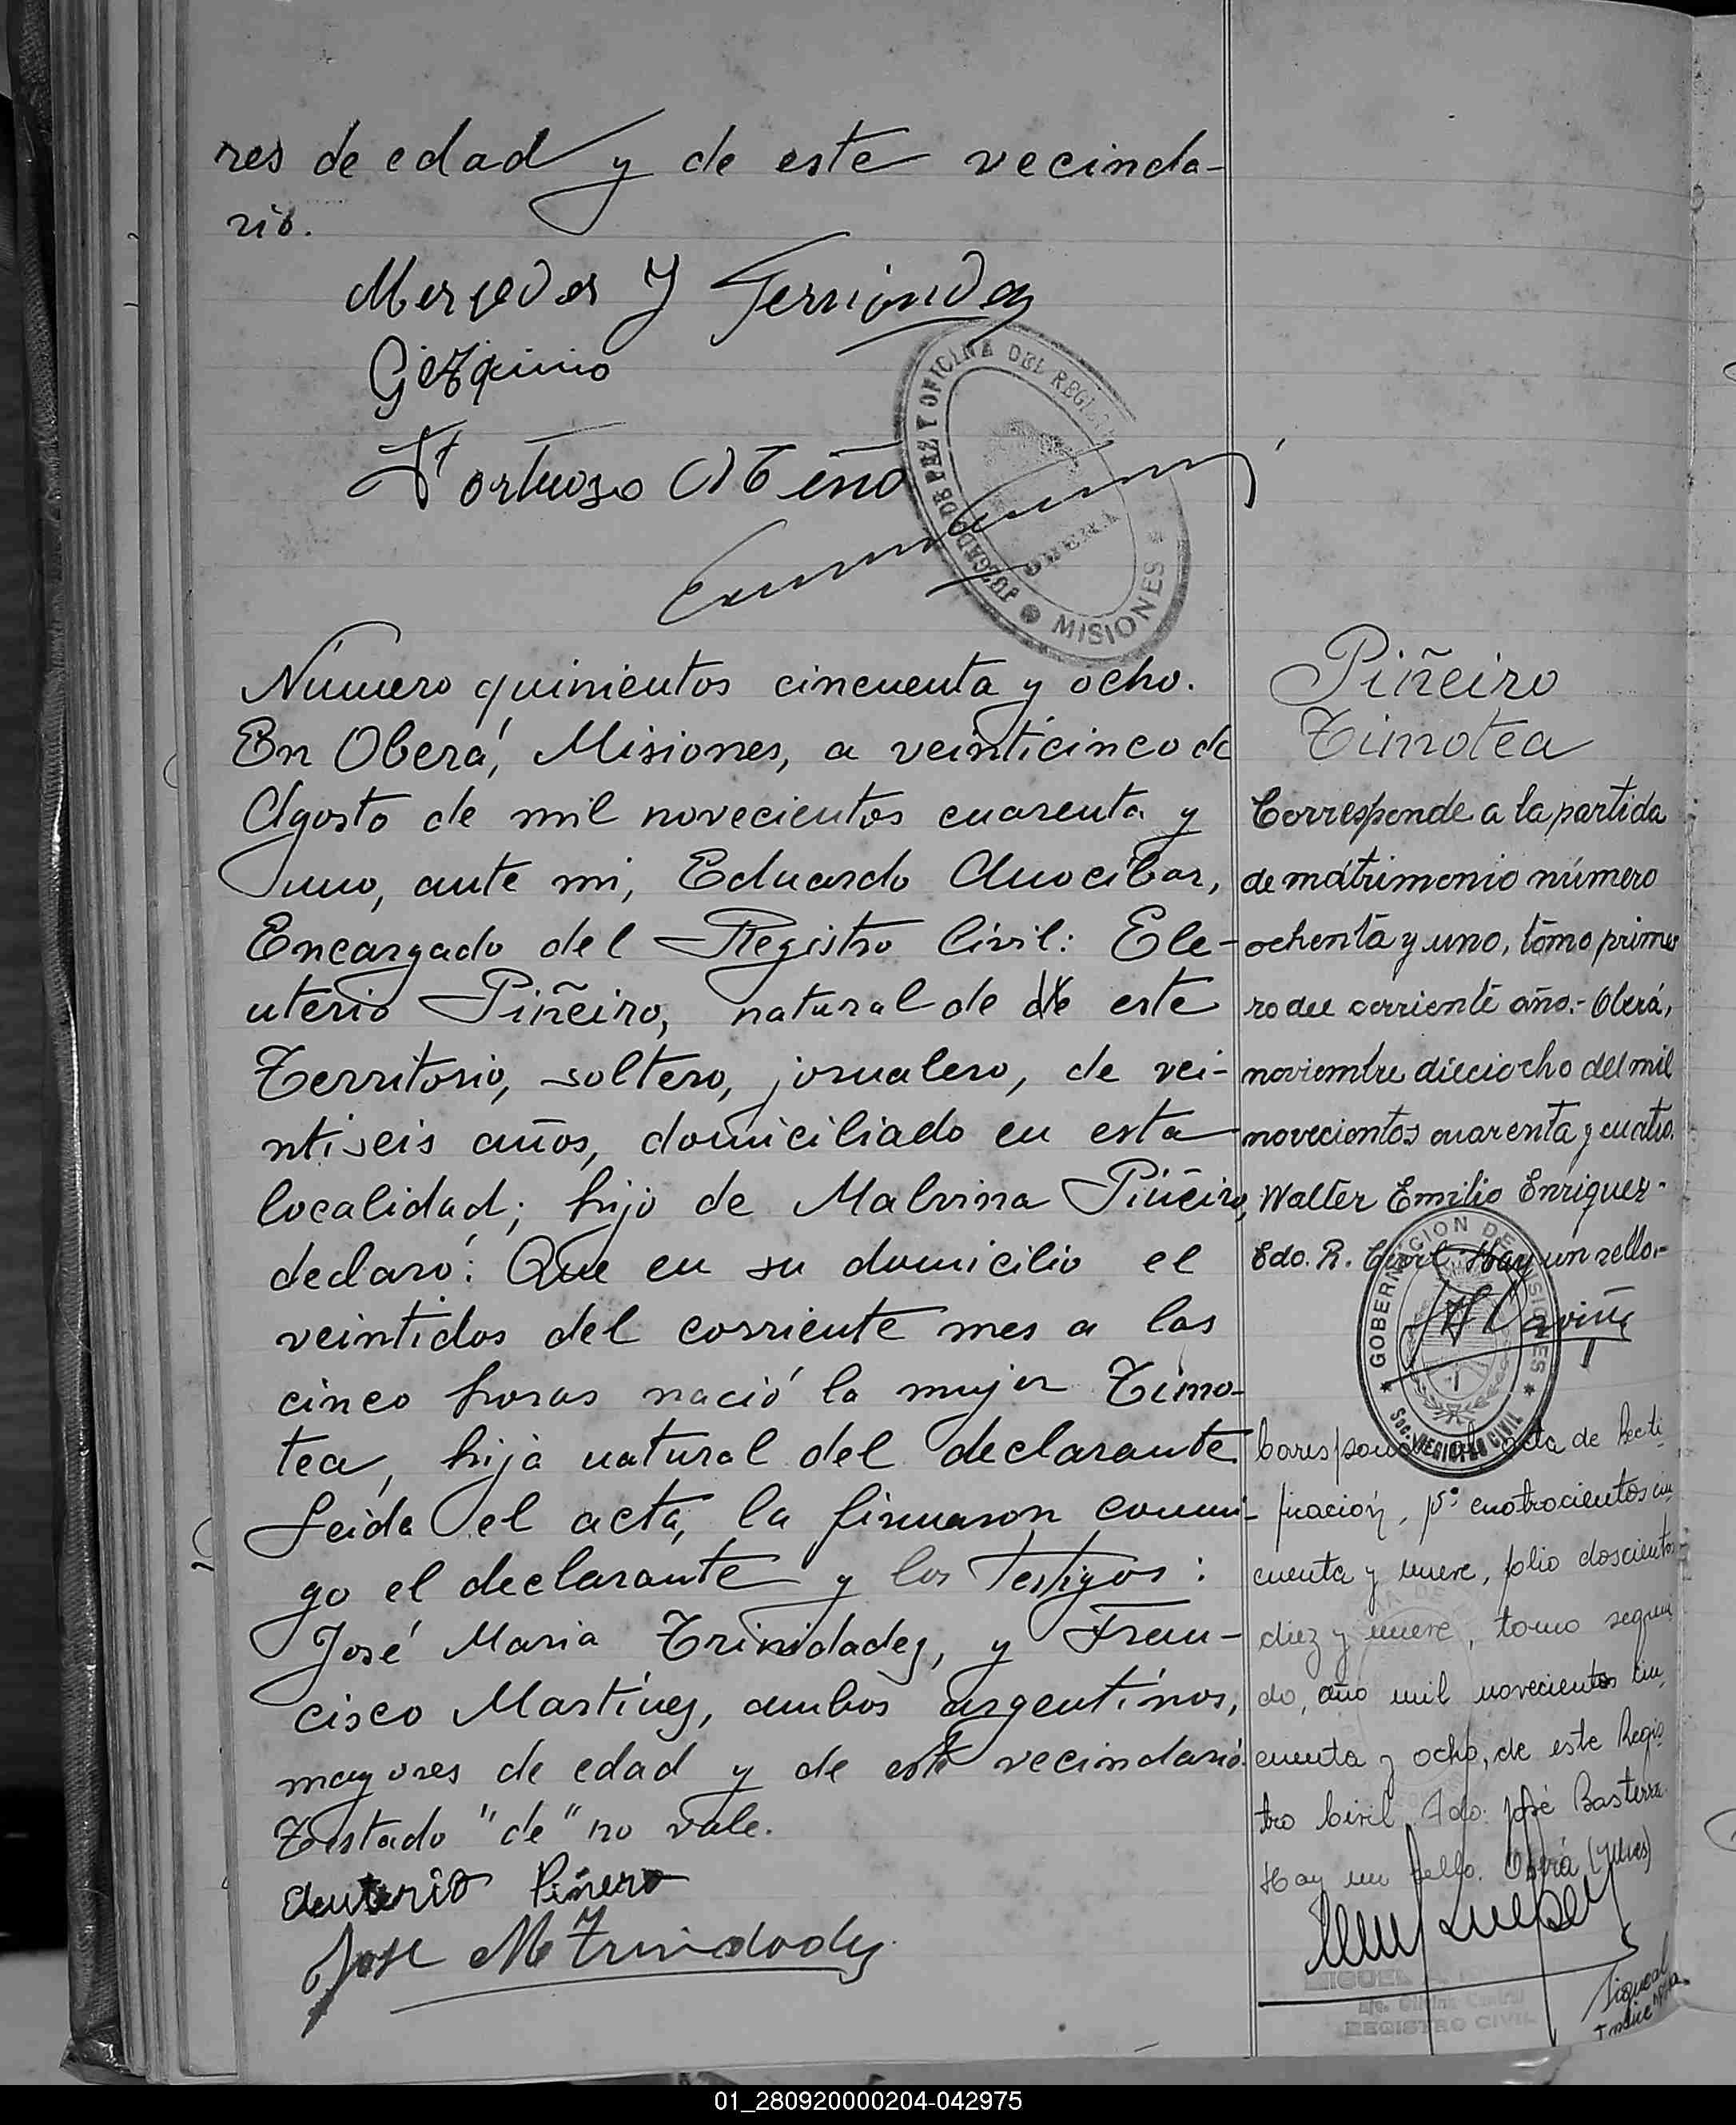 res de edad y de este vecinda-
rio.
Mercedes J Fernández
Fortuoso
JUZGADO DE PAZ Y OFICINA DEL REGISTRO
OBERA
MISIONES
Número quinientos cincuenta y ocho.
En Oberá, Misiones, a veinticinco de
Agosto de mil novecientos cuarenta y
uno, ante mi, Eduardo Anocibar,
Encargado del Registro Civil: Ele-
uterio Piñeiro, natural de de este
Territorio, soltero, jornalero, de vei-
ntiseis años, domiciliado en esta
localidad; hijo de Malvina Piñeiro,
declaró: Que en su domicilio el
veintidos del corriente mes a las
cinco horas nació la mujer Timo-
tea, hija natural del declarante
Leida el acta, la firmaron conmi-
go el declarante y los testigos:
José Maria Trinidadez, y Fran-
cisco Martínez, ambos argentinos,
mayores de edad y de este vecindario.
Testado "de" no vale.
eleuterio Piñero
Jose M Trindadez
Piñeiro
Timotea
Corresponde a la partida
de mátrimonio número
ochenta y uno, tomo prime
ro del corriente año.- Oberá,
noviembre dieciocho del mil
novecientos cuarenta y cuatro.
Walter Emilio Enriquez-
Edo. R. Civil. Hay un sello.-
GOBERNACION DE MISIONES
Sec. REGISTRO CIVIL
Corresponde al acta de Recti
ficación, nº cuatrocientos cin
cuenta y nueve, folio doscientos
diez y nueve, tomo segun
do, año mil novecientos cin
cuenta y ocho, de este Regis
tro Civil. Fdo: José Basterra.
Hay un sello. Oberá (Mnes)
MIGUEL
Oficina Central
REGISTRO CIVIL
01_280920000204-042975